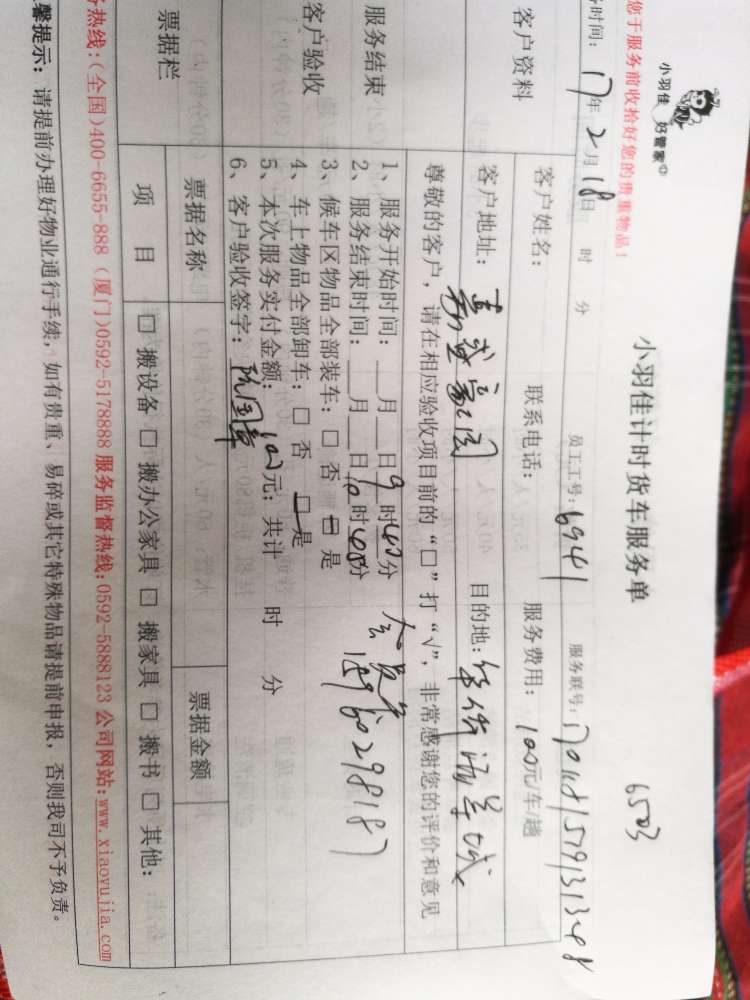 小羽佳 好管家
小羽佳计时货车服务单
6503
您于服务前收拾好您的贵重物品！
员工工号：6941
服务联号：
务时间：17年2月18日 时 分
客户资料
客户姓名： 联系电话： 服务费用：100元/车/趟
客户地址： 目的地：
尊敬的客户，请在相应验收项目前的“□”打“√”，非常感谢您的评价和意见
服务结束
客户验收
1、服务开始时间：__月__日9时40分
2、服务结束时间：__月__日10时40分
3、候车区物品全部装车：□ 否 □ 是
4、车上物品全部卸车：□ 否 □ 是
5、本次服务实付金额：100元；共计 时 分
6、客户验收签字：
会员卡
15960298187
票据栏
票据名称 票据金额
项 目 □ 搬设备 □ 搬办公家具 □ 搬家具 □ 搬书 □ 其他：
务热线：(全国)400-6655-888 (厦门)0592-5178888 服务监督热线:0592-5888123 公司网站:www.xiaoyujia.com
馨提示：请提前办理好物业通行手续，如有贵重、易碎或其它特殊物品请提前申报，否则我司不予负责。